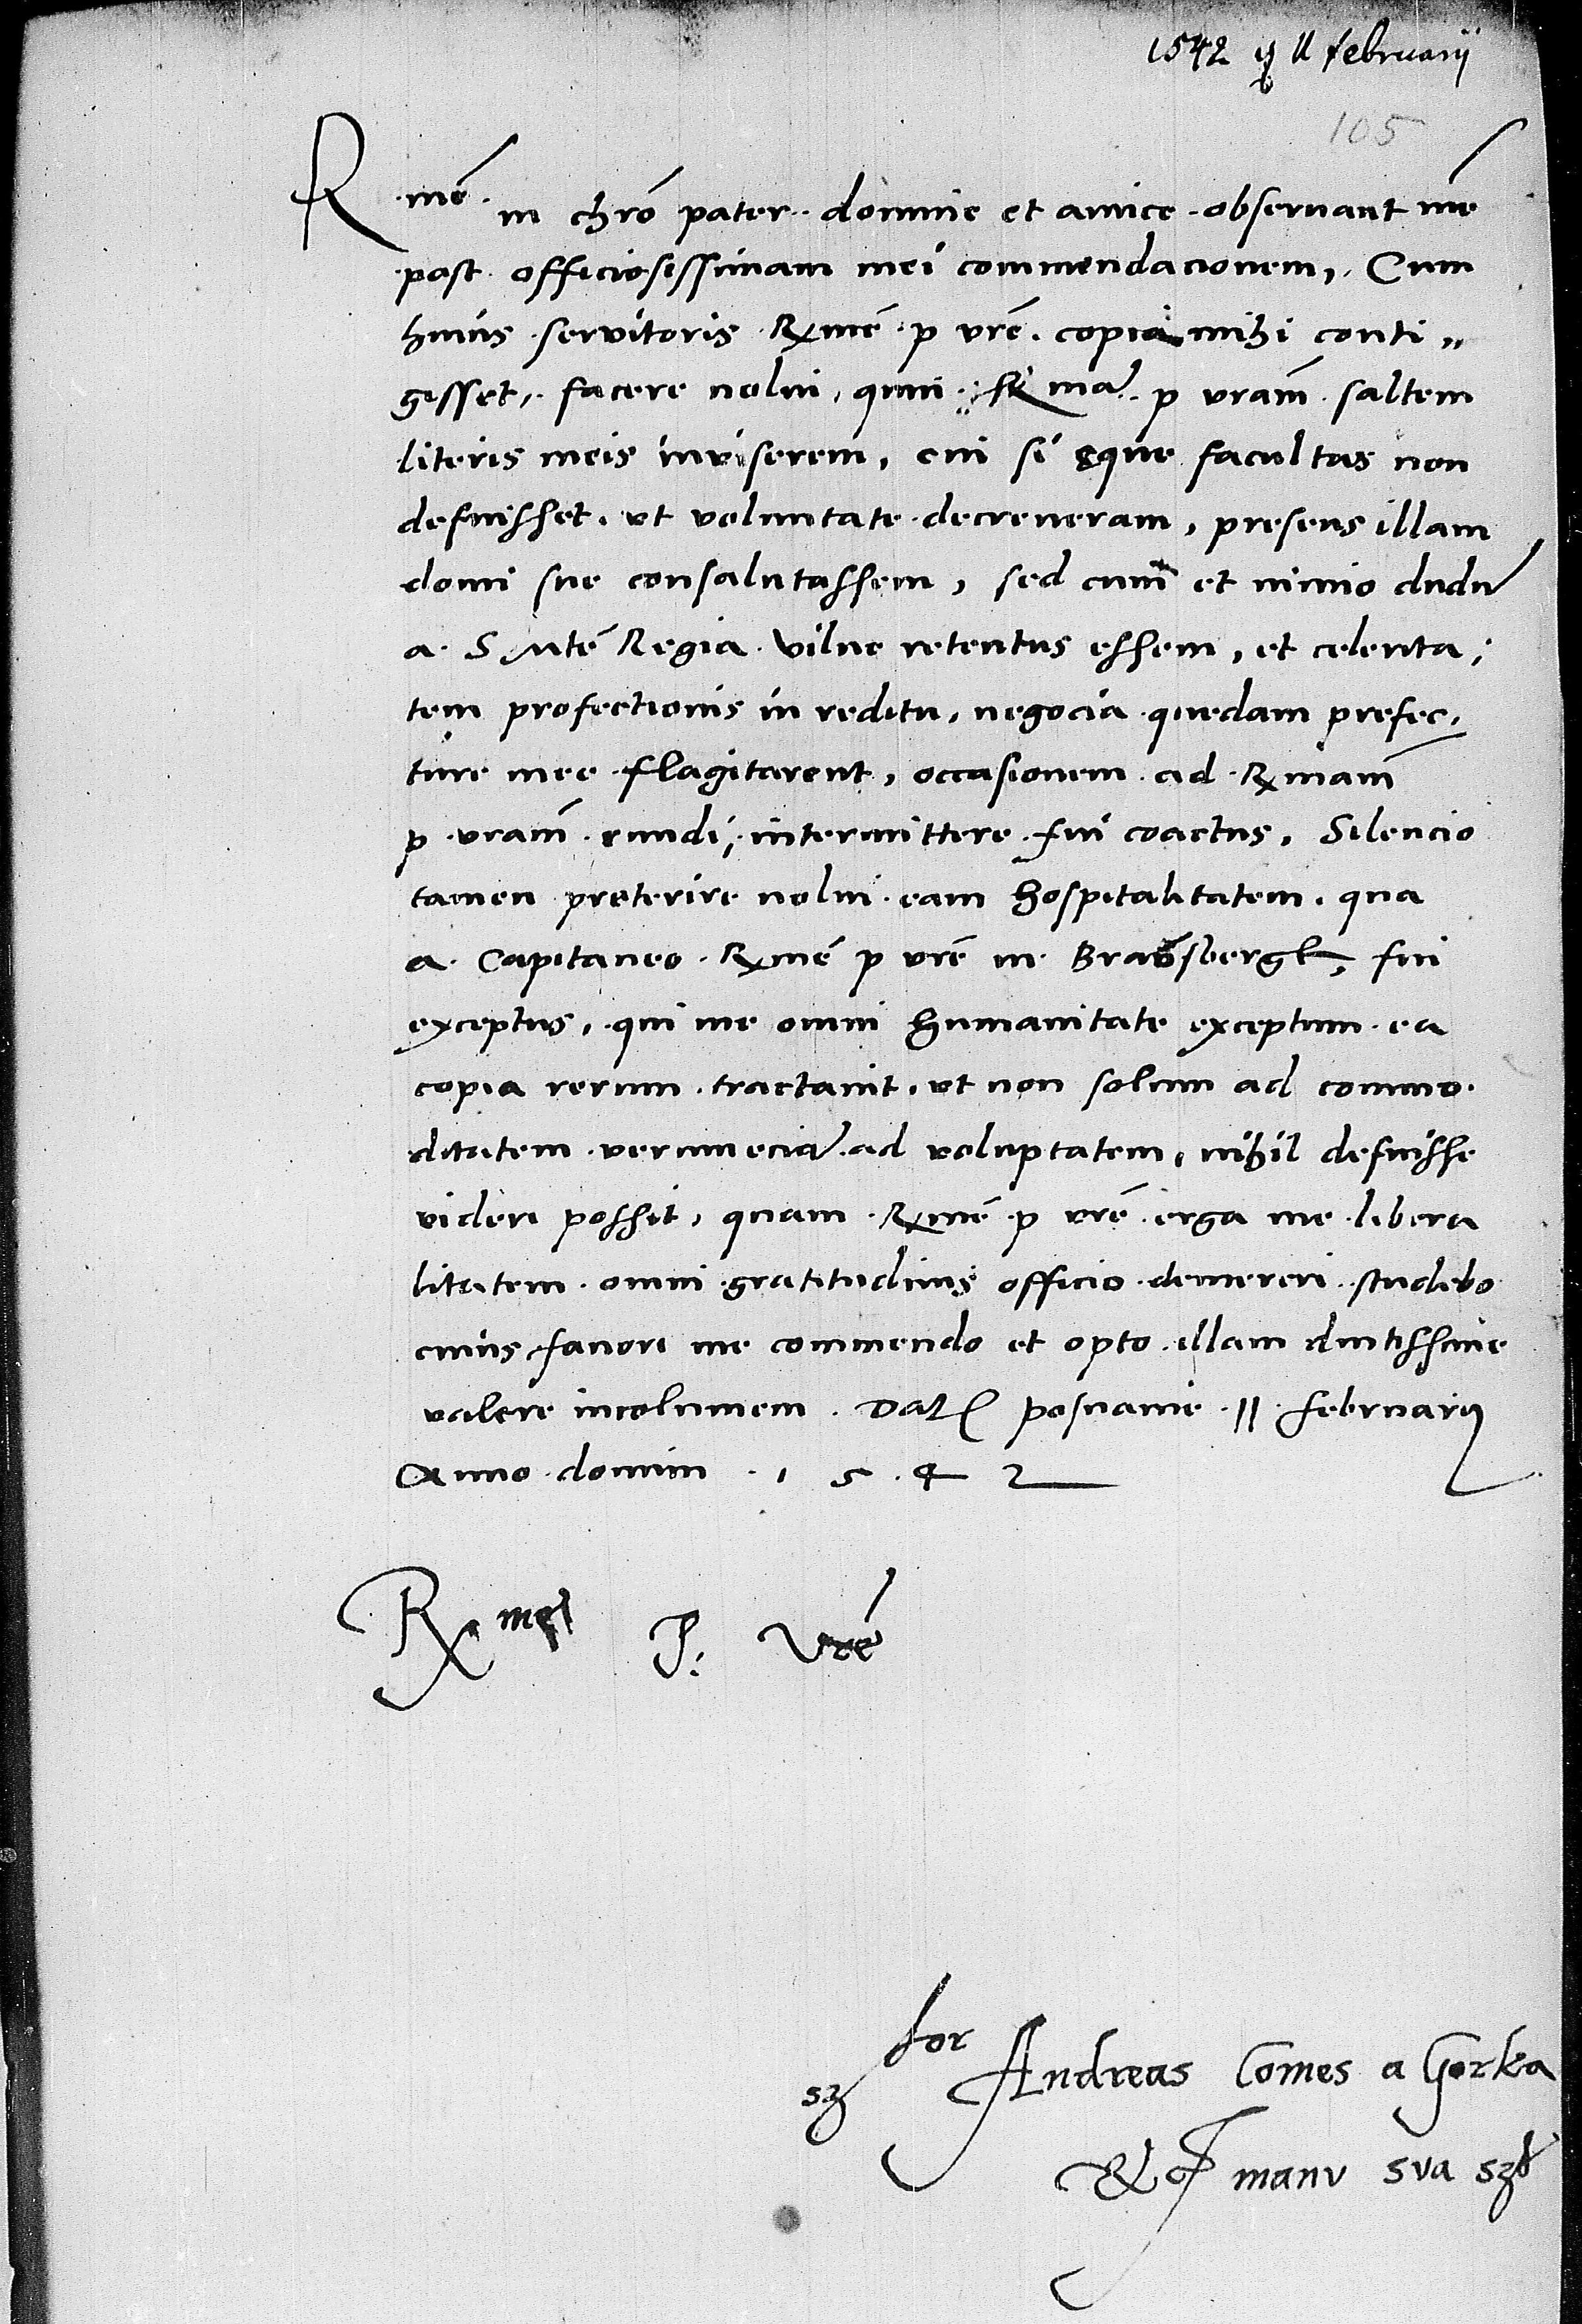 1542 11 februarij
105
R mē in chrō pater domine et amice observant me
post officiosissimam mei commendacionem, Cum
huius servitoris Rx mē p vrē copia mihi conti,,
gisset, facere nolui, quin Rx mā p vram̄ saltem
literis meis inviserem, cui si eque facultas non
defuisset, vt voluntate decreveram, presens illam
domi sue consalutassem, sed cum et nimio dudū
a S Mtē Regia vilne retentus essem, et celerita,
tem profectionis in reditu, negocia quedam prefec,
ture mee flagitarent, occasionem ad Rx mam̄
p vram̄ eundi, intermittere fui coactus, Silencio
tamen preterire nolui eam hospitalitatem, qua
a Capitaneo Rx mē p vrē in Braŭsbergk, fui
exceptus, qui me omni humanitate exceptum ea
copia rerum tractavit, vt non solum ad commo
ditatem verumeciā ad voluptatem, nihil defuisse
videri possit, quam Rx mē p vrē erga me libera
litatem omni gratitudinis officio demereri studebo
cuius favori me commendo et opto illam diutissime
valere incolumem. Dat posnanie 11 februarij
Anno domini 1 5 4 2
Rx me P: Vrē
sz for Andreas Comes a Gorka
manu sua sz